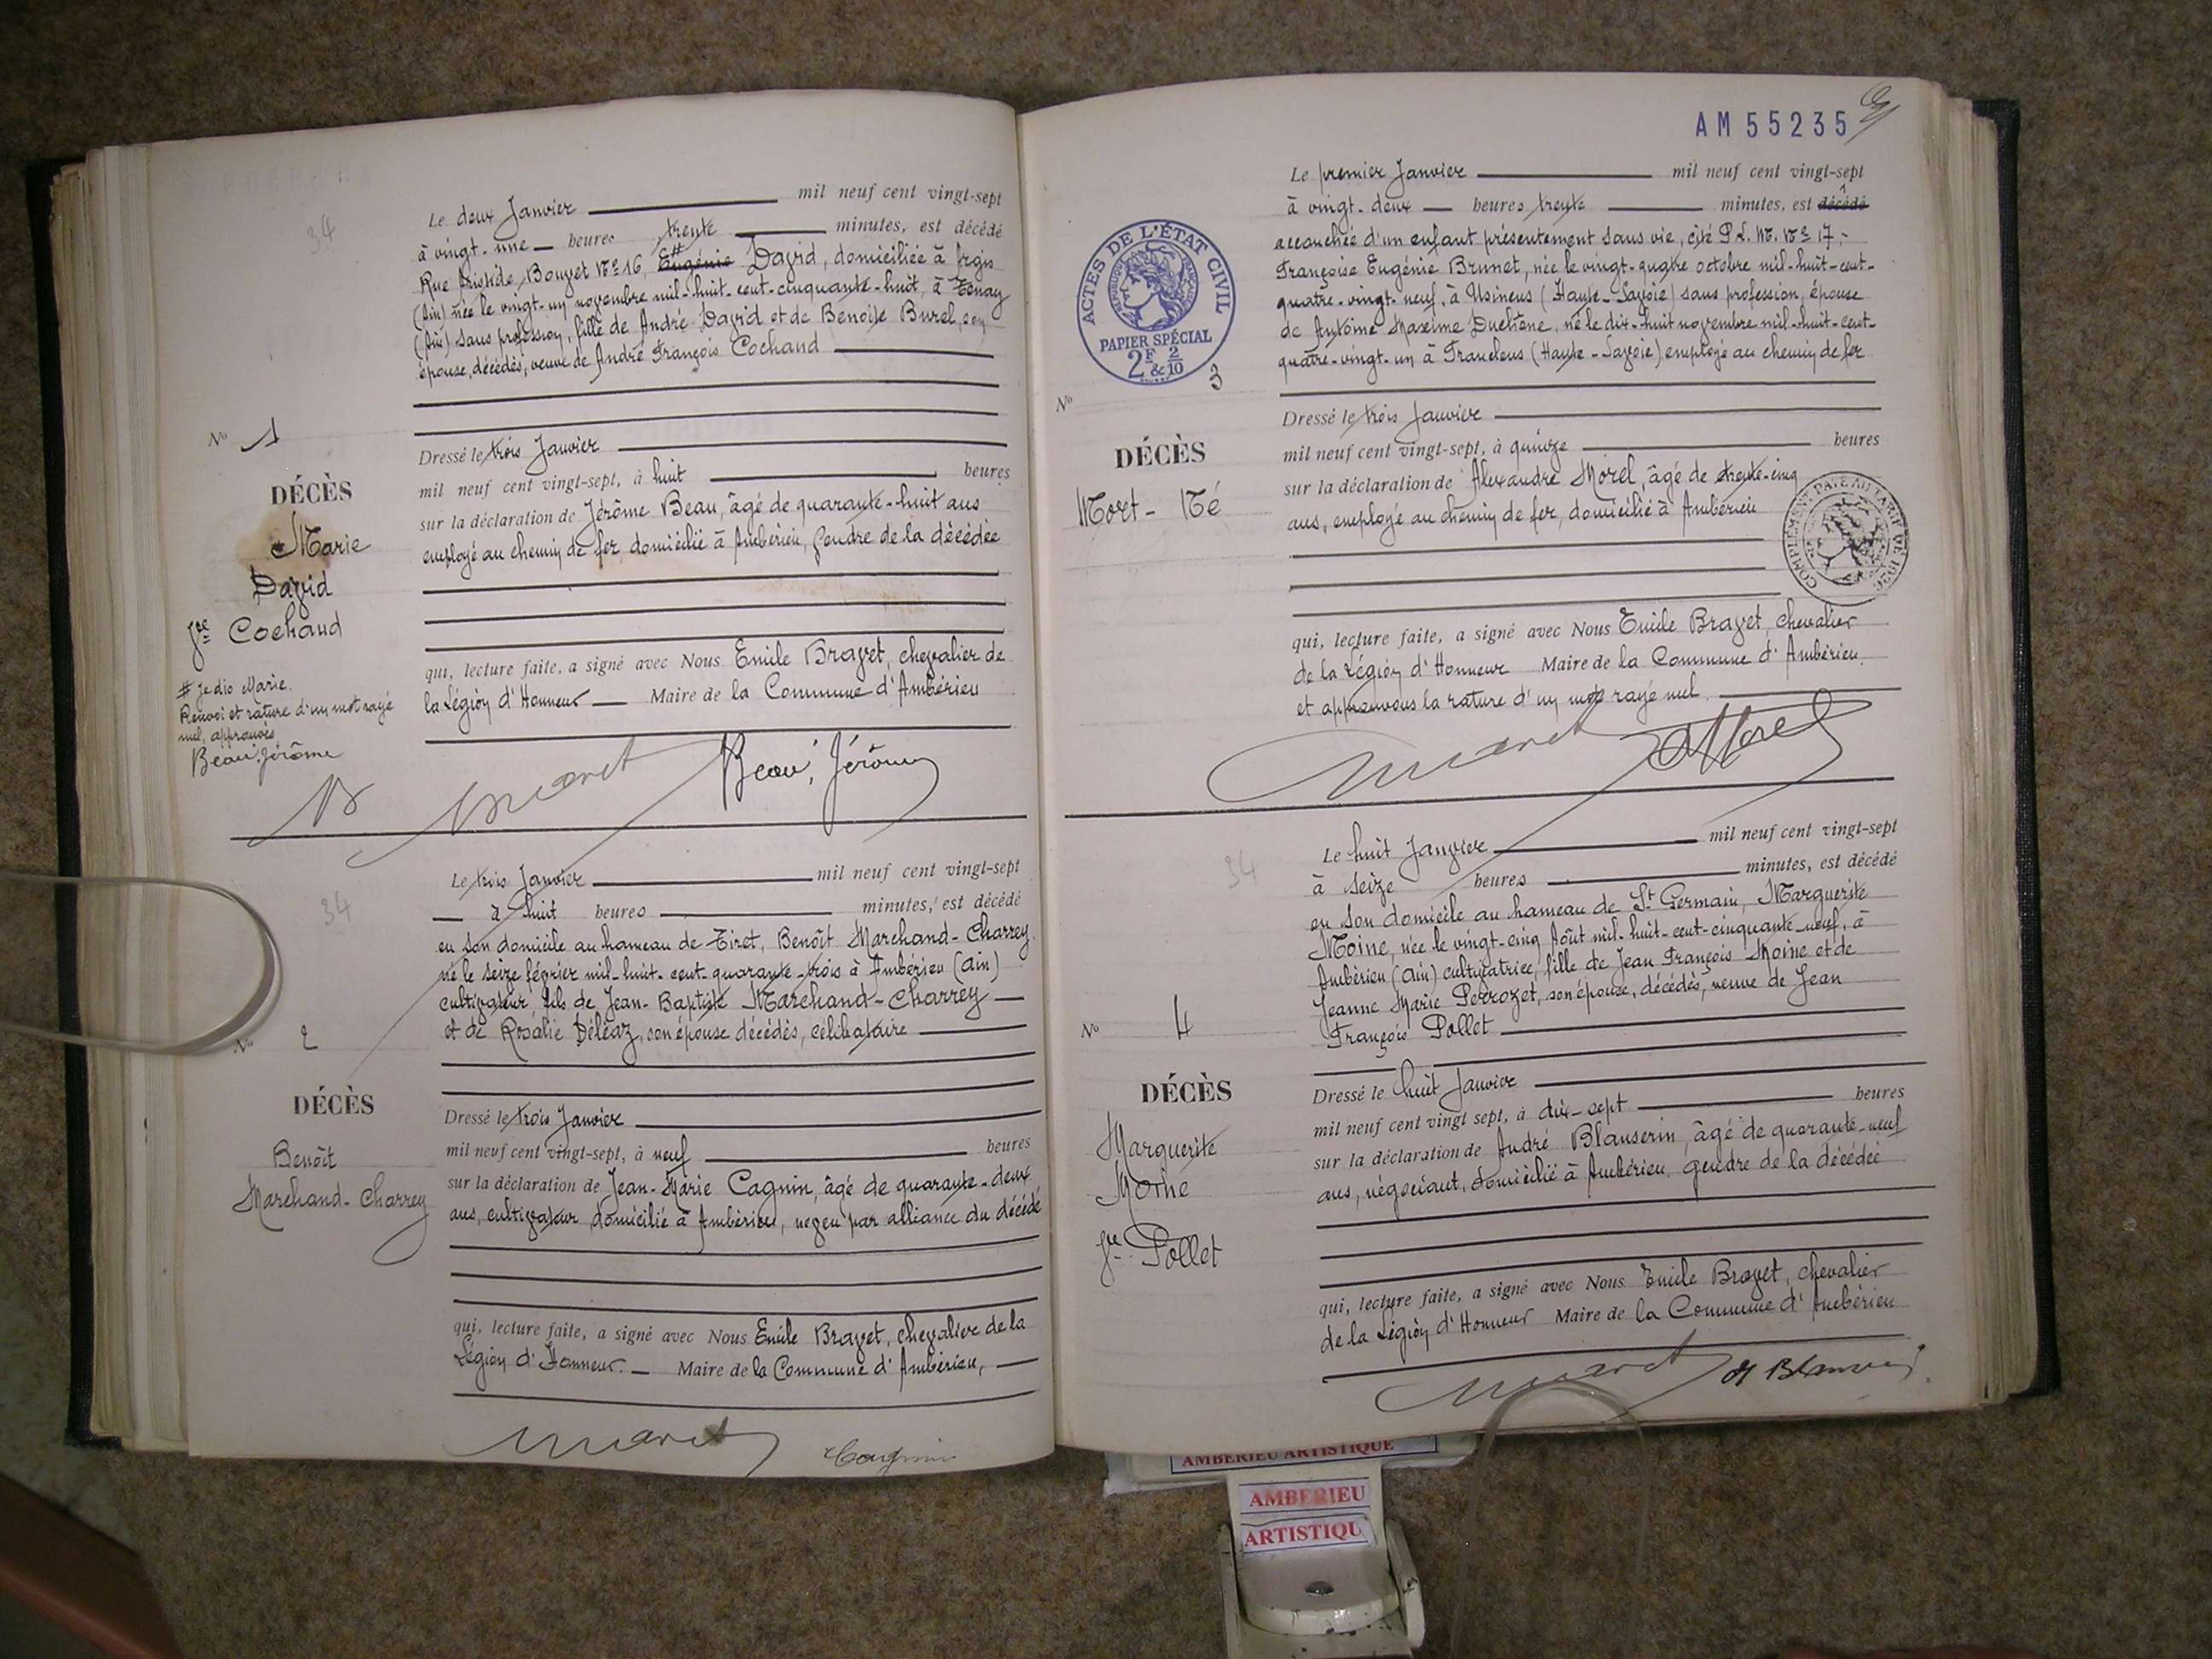 34
Le deux Janvier mil neuf cent vingt-sept
à vingt-une heures trente minutes, est décédé
Rue Aristide Bouvet Nº 16, # Eugénie David, domiciliée à Argis
(Ain) née le vingt-un novembre mil-huit-cent-cinquante-huit, à Tenay
(Ain) sans profession, fille de André David et de Benoîte Burel, son
épouse, décédés, veuve de André François Cochand
Nº 1
DÉCÈS
Marie
David
Vve Cochaud
# Je dis Marie.
Renvoi et rature d'un mot rayé
nul, approuvés
Beau Jérôme
Dressé le trois Janvier
mil neuf cent vingt-sept, à huit heures
sur la déclaration de Jérôme Beau, âgé de quarante-huit ans
employé au chemin de fer, domicilié à Ambérieu, Gendre de la décédée
qui, lecture faite, a signé avec Nous Emile Bravet, chevalier de
la Légion d'Honneur Maire de la Commune d'Ambérieu
Beau Jérôme
34
Le trois Janvier mil neuf cent vingt-sept
à huit heures minutes, est décédé
en son domicile au hameau de Tiret, Benoît Marchand-Charrey
né le seize février mil-huit-cent-quarante-trois à Ambérieu (Ain)
cultivateur fils de Jean-Baptiste Marchand-Charrey
et de Rosalie Déléaz, son épouse décédés, célibataire
Nº 2
DÉCÈS
Benoît
Marchand-Charrey
Dressé le trois Janvier
mil neuf cent vingt-sept, à neuf heures
sur la déclaration de Jean-Marie Cagnin, âgé de quarante-deux
ans, cultivateur domicilié à Ambérieu, neveu par alliance du décédé
qui, lecture faite, a signé avec Nous Emile Bravet, chevalier de la
Légion d'Honneur. Maire de la Commune d'Ambérieu,
Cagnin
AM 55235
Le premier Janvier mil neuf cent vingt-sept
à vingt-deux heures trente minutes, est décédé
accouchée d'un enfant présentement sans vie, cité P.L.M. Nº 17,
Françoise Eugénie Brunet, née le vingt-quatre octobre mil-huit-cent-
quatre-vingt-neuf, à Usinens (Haute-Savoie) sans profession, épouse
de Antoine Maxime Duchêne, né le dix-huit novembre mil-huit-cent-
quatre-vingt-un à Franclens (Haute-Savoie) employé au chemin de fer
ACTES DE L'ÉTAT CIVIL
RÉPUBLIQUE FRANÇAISE
PAPIER SPÉCIAL
2F & 2/10
Nº 3
DÉCÈS
Mort-Né
Dressé le trois Janvier
mil neuf cent vingt-sept, à quinze heures
sur la déclaration de Alexandre Morel, âgé de trente-cinq
ans, employé au chemin de fer, domicilié à Ambérieu
COMPLÉMENT PAYÉ AU TARIF DE 1926
qui, lecture faite, a signé avec Nous Emile Bravet, chevalier
de la Légion d'Honneur Maire de la Commune d'Ambérieu.
et approuvons la rature d'un mot rayé nul.
Morel
34
Le huit Janvier mil neuf cent vingt-sept
à seize heures minutes, est décédé
en son domicile au hameau de St Germain, Marguerite
Moine, née le vingt-cinq Août mil-huit-cent-cinquante-neuf, à
Ambérieu (Ain) cultivatrice, fille de Jean François Moine et de
Jeanne Marie Perrozet, son épouse, décédés, veuve de Jean
François Pollet
Nº 4
DÉCÈS
Marguerite
Moine
Vve Pollet
Dressé le huit Janvier
mil neuf cent vingt sept, à dix-sept heures
sur la déclaration de André Blanserin, âgé de quarante-neuf
ans, négociant, domicilié à Ambérieu, gendre de la décédée
qui, lecture faite, a signé avec Nous Emile Bravet, chevalier
de la Légion d'Honneur Maire de la Commune d'Ambérieu
AMBERIEU ARTISTIQUE
AMBERIEU
ARTISTIQU